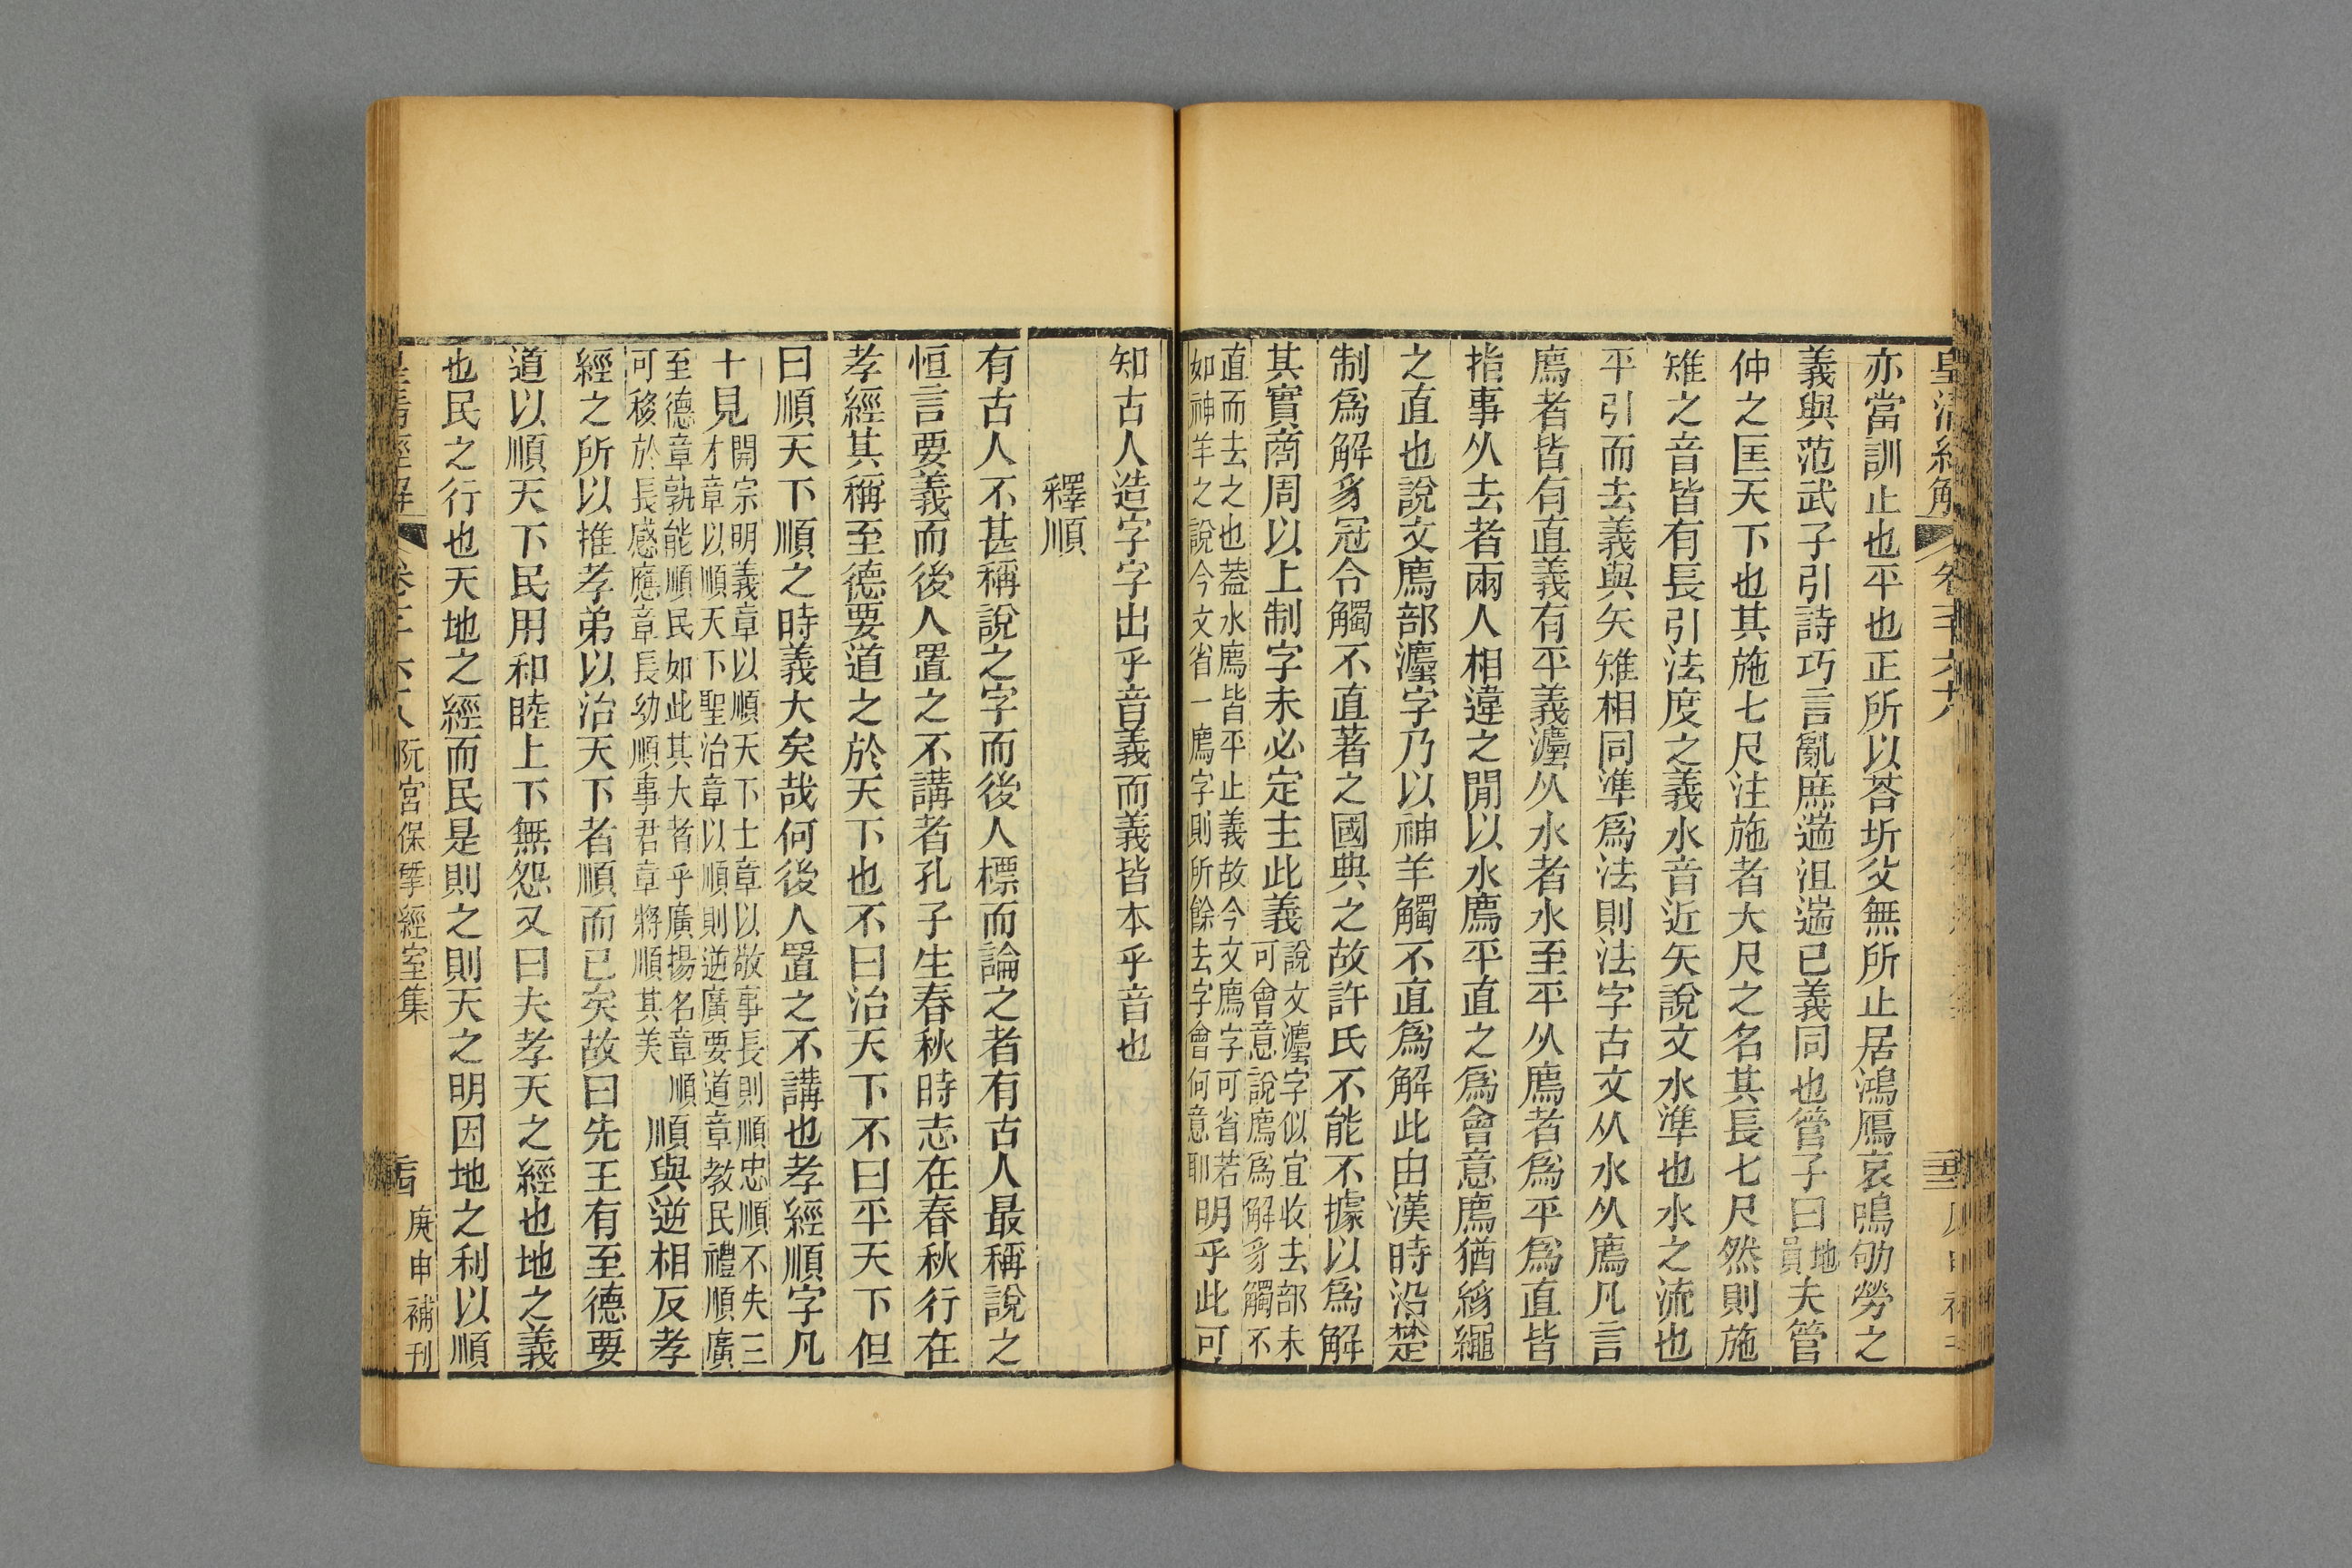 皇清經解
亦當訓止也平也正所以荅圻父無所止居鴻鴈哀鳴劬勞之
義與范武子引詩巧言亂庶遄沮遄已義同也管子曰地員夫管
仲之匡天下也其施七尺注施者大尺之名其長七尺然則施
雉之音皆有長引法度之義水音近矢說文水準也水之流也
平引而去義與矢雉相同準爲法則法字古文从水从廌凡言
廌者皆有直義有平義灋从水者水至平从廌者爲平爲直皆
指事从去者兩人相違之閒以水廌平直之爲會意廌猶繩
之直也說文廌部灋字乃以神羊觸不直爲解此由漢時沿楚
制爲解豸冠令觸不直著之國典之故許氏不能不據以爲解
其實商周以上制字未必定主此義說文灋字似宜收去部未
可會意說廌爲解豸觸不
直而去之也葢水廌皆平止義故今文廌字可省若
如神羊之說今文省一廌字則所餘去字會何意耶明乎此可
知古人造字字出乎音義而義皆本乎音也
釋順
有古人不甚稱說之字而後人標而論之者有古人最稱說之
恒言要義而後人置之不講者孔子生春秋時志在春秋行在
孝經其稱至德要道之於天下也不曰治天下不曰平天下但
曰順天下順之時義大矣哉何後人置之不講也孝經順字凡
十見開宗明義章以順天下士章以敬事長則順忠順不失三
才章以順天下聖治章以順則逆廣要道章教民禮順廣
至德章孰能順民如此其大者乎廣揚名章順
可移於長感應章長幼順事君章將順其美順與逆相反孝
經之所以推孝弟以治天下者順而已矣故曰先王有至德要
道以順天下民用和睦上下無怨又曰夫孝天之經也地之義
也民之行也天地之經而民是則之則天之明因地之利以順
阮宮保揅經室集
庚申補刊